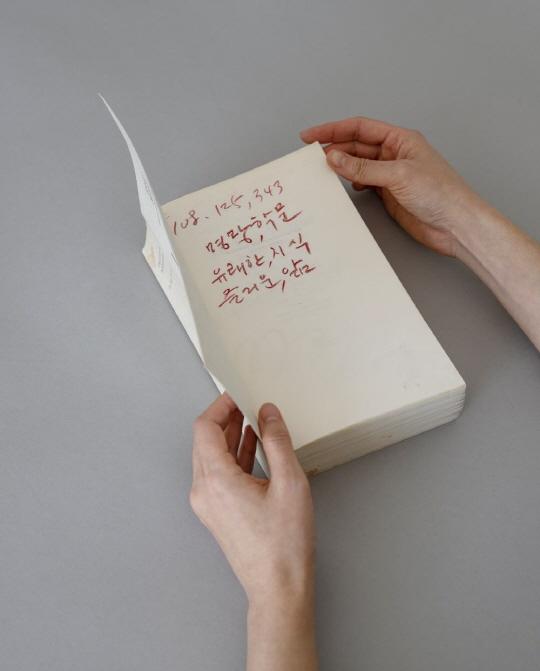 108. 125, 343
명랑,학문
유쾌한,지식
즐거운,앎